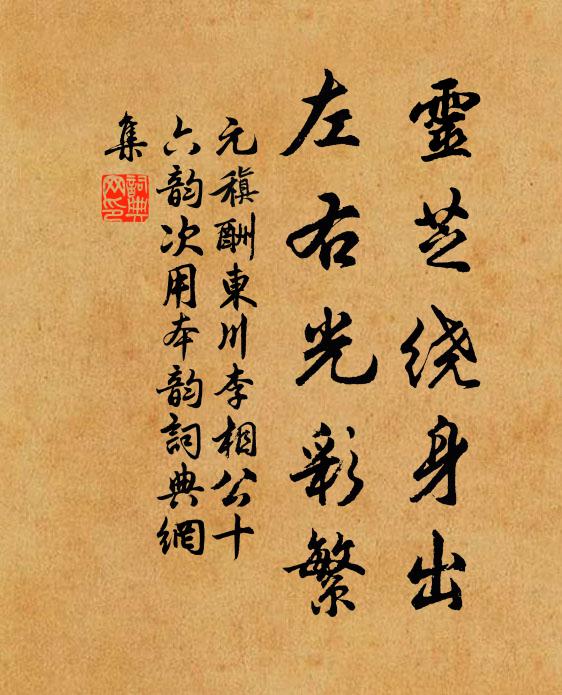 靈芝绕身出
左右光彩繁
元稹酬東川李相公十
六韵次用本韵詞典網
集
詞典
网印